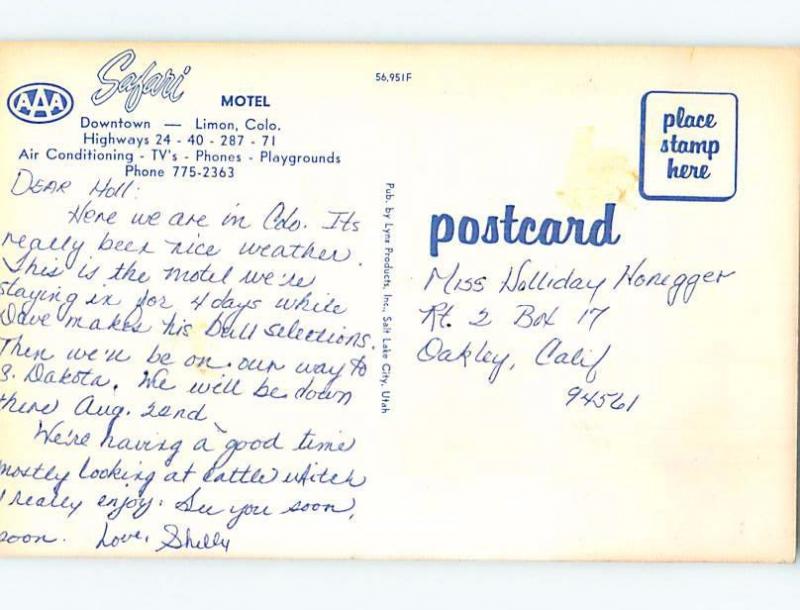 Safari
MOTEL
AAA
Downtown — Limon, Colo.
Highways 24 - 40 - 287 - 71
Air Conditioning - TV's - Phones - Playgrounds
Phone 775-2363
56,951F
place
stamp
here
DEAR Holl:
Here we are in Colo. Its
really been nice weather.
This is the motel we're
staying in for 4 days while
Dave makes his bull selections.
Then we'll be on our way to
S. Dakota. We will be down
there Aug. 22nd
We're having a good time
mostly looking at cattle which
I really enjoy. See you soon,
soon. Love, Shelly
Pub. by Lynx Products, Inc., Salt Lake City, Utah
postcard
Miss Holliday Honegger
Rt. 2 Box 17
Oakley, Calif
94561